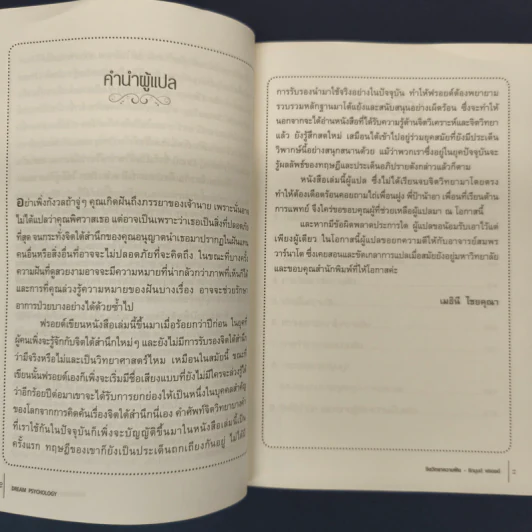 คำนำผู้แปล
อย่าเพิ่งกังวลถ้าจู่ๆ คุณเกิดฝันถึงภรรยาของเจ้านาย เพราะนั่นอาจ
ไม่ได้แปลว่าคุณพิศวาสเธอ แต่อาจเป็นเพราะว่าเธอเป็นสิ่งที่ปลอดภัย
ที่สุด จนกระทั่งจิตใต้สำนึกของคุณอนุญาตนำเธอมาปรากฏในฝันแทน
คนอื่นหรือสิ่งอื่นที่อาจจะไม่ปลอดภัยที่จะคิดถึง ในขณะที่บางครั้ง
ความฝันที่ดูสวยงามอาจมีความหมายที่น่ากลัวกว่าภาพที่เห็นก็ได้
และการที่คุณล่วงรู้ความหมายของฝันบางเรื่อง อาจจะช่วยรักษา
อาการป่วยบางอย่างได้ด้วยซ้ำไป
ฟรอยด์เขียนหนังสือเล่มนี้ขึ้นมาเมื่อร้อยกว่าปีก่อน ในยุคที่
ผู้คนเพิ่งจะรู้จักกับจิตใต้สำนึกใหม่ๆ และยังไม่มีการรับรองจิตใต้สำนึก
ว่ามีจริงหรือไม่และเป็นวิทยาศาสตร์ไหม เหมือนในสมัยนี้ ขณะที่
เขียนนั้นฟรอยด์เองก็เพิ่งจะเริ่มมีชื่อเสียงแบบที่ยังไม่มีใครจะล่วงรู้ได้
ว่าอีกร้อยปีต่อมาเขาจะได้รับการยกย่องให้เป็นหนึ่งในบุคคลสำคัญ
ของโลกจากการคิดค้นเรื่องจิตใต้สำนึกนี่เอง คำศัพท์จิตวิทยาบางคำ
ที่เราใช้กันในปัจจุบันก็เพิ่งจะบัญญัติขึ้นมาในหนังสือเล่มนี้เป็น
ครั้งแรก ทฤษฎีของเขาก็ยังเป็นประเด็นถกเถียงกันอยู่ ไม่ได้มี
DREAM PSYCHOLOGY
การรับรองนำมาใช้จริงอย่างในปัจจุบัน ทำให้ฟรอยด์ต้องพยายาม
รวบรวมหลักฐานมาโต้แย้งและสนับสนุนอย่างเผ็ดร้อน ซึ่งจะทำให้
นอกจากจะได้อ่านหนังสือที่ได้รับความรู้ด้านจิตวิเคราะห์และจิตวิทยา
แล้ว ยังรู้สึกสดใหม่ เสมือนได้เข้าไปอยู่ร่วมยุคสมัยที่ยังมีประเด็น
วิพากษ์นี้อย่างสนุกสนานด้วย แม้ว่าพวกเราซึ่งอยู่ในยุคปัจจุบันจะ
รู้ผลลัพธ์ของทฤษฎีและประเด็นอภิปรายดังกล่าวแล้วก็ตาม
หนังสือเล่มนี้ผู้แปล ซึ่งไม่ได้เรียนจบจิตวิทยามาโดยตรง
ทำให้ต้องเดือดร้อนคอยถามไถ่เพื่อนฝูง พี่ป้าน้าอา เพื่อนที่เรียนด้าน
การแพทย์ จึงใคร่ขอขอบคุณผู้ที่ช่วยเหลือผู้แปลมา ณ โอกาสนี้
และหากมีข้อผิดพลาดประการใด ผู้แปลขอน้อมรับเอาไว้แต่
เพียงผู้เดียว ในโอกาสนี้ผู้แปลขอยกความดีให้กับอาจารย์สมพร
วาร์นาโด ซึ่งเคยสอนและขัดเกลาการแปลเมื่อสมัยยังอยู่มหาวิทยาลัย
และขอบคุณสำนักพิมพ์ที่ให้โอกาสค่ะ
เมธินี ไชยคุณา